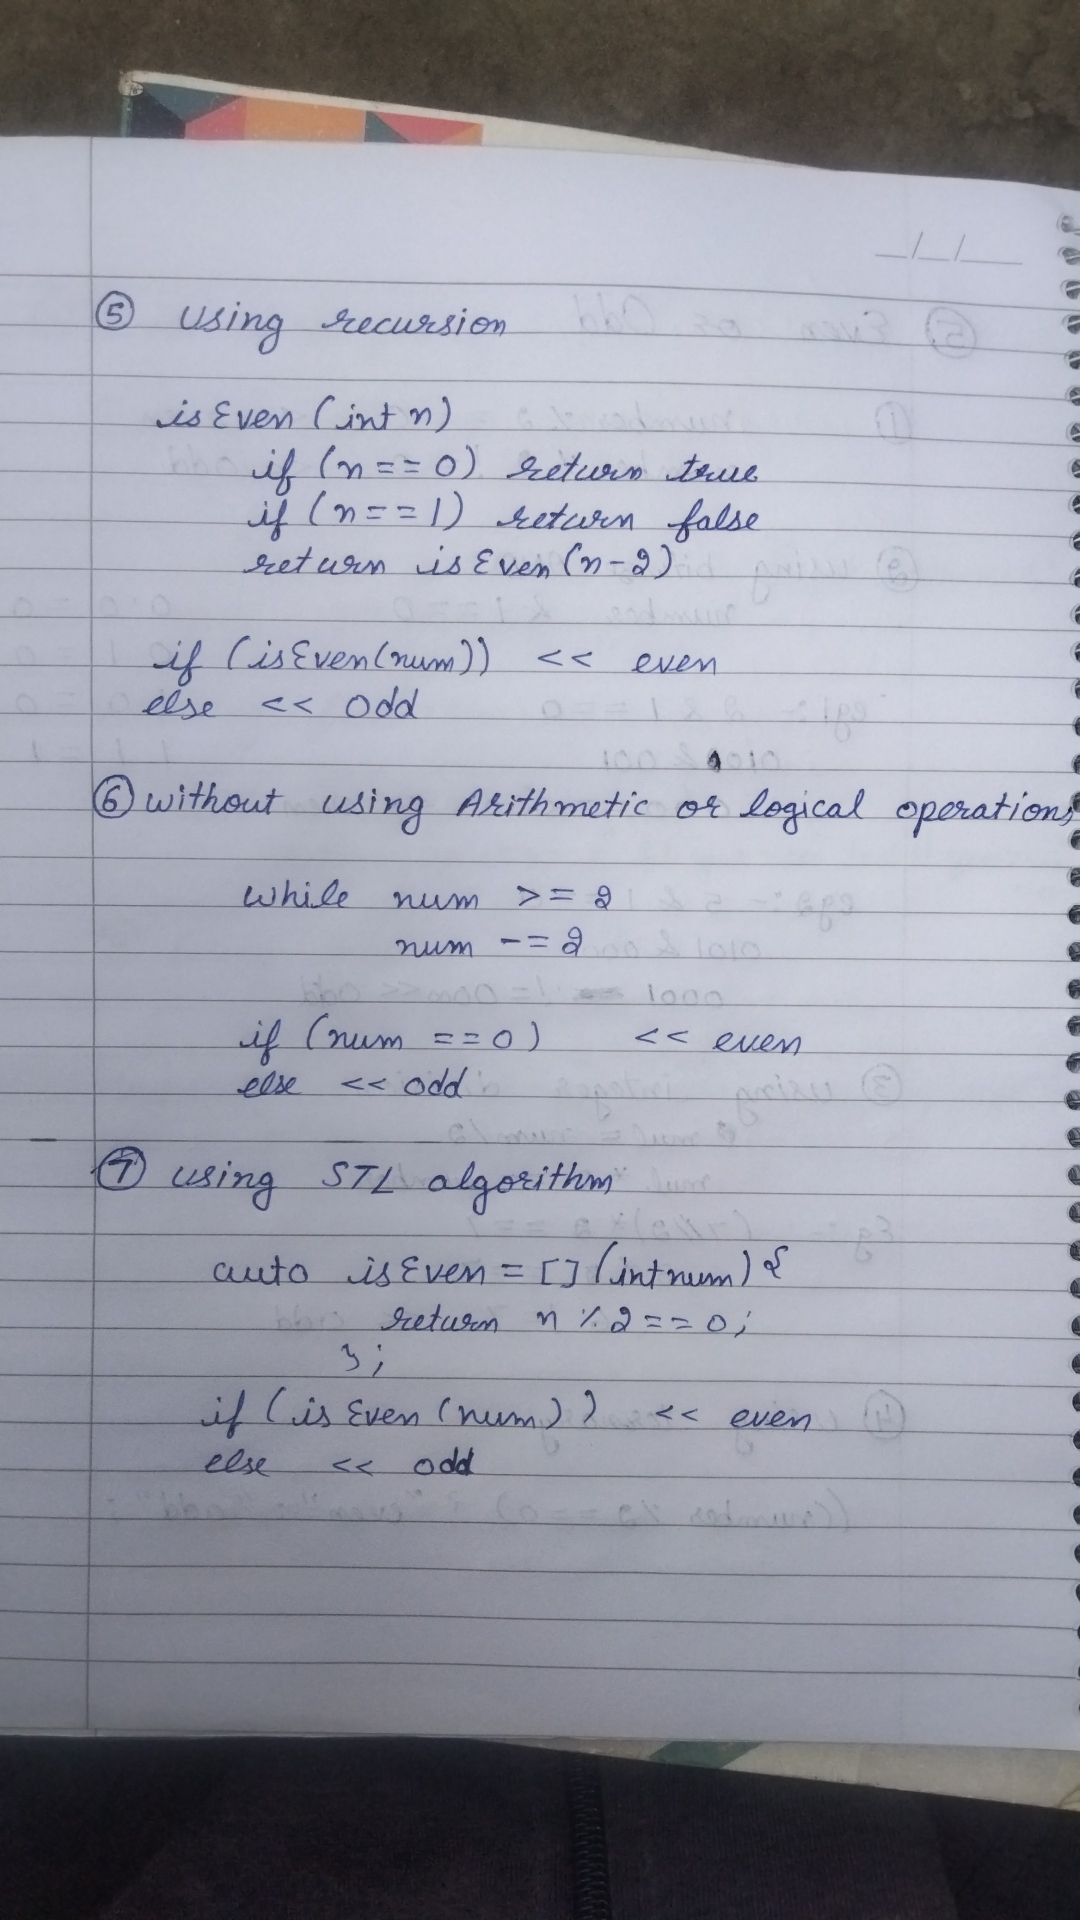 ⑤ using recursion
isEven (int n)
if (n==0) return true
if (n==1) return false
return isEven (n-2)
if (isEven(num)) << even
else << odd
⑥ without using Arithmetic or logical operations
while num >= 2
num -= 2
if (num ==0) << even
else << odd
⑦ using STL algorithm
auto isEven = [] (int num) {
return n % 2 == 0;
};
if (isEven (num)) << even
else << odd